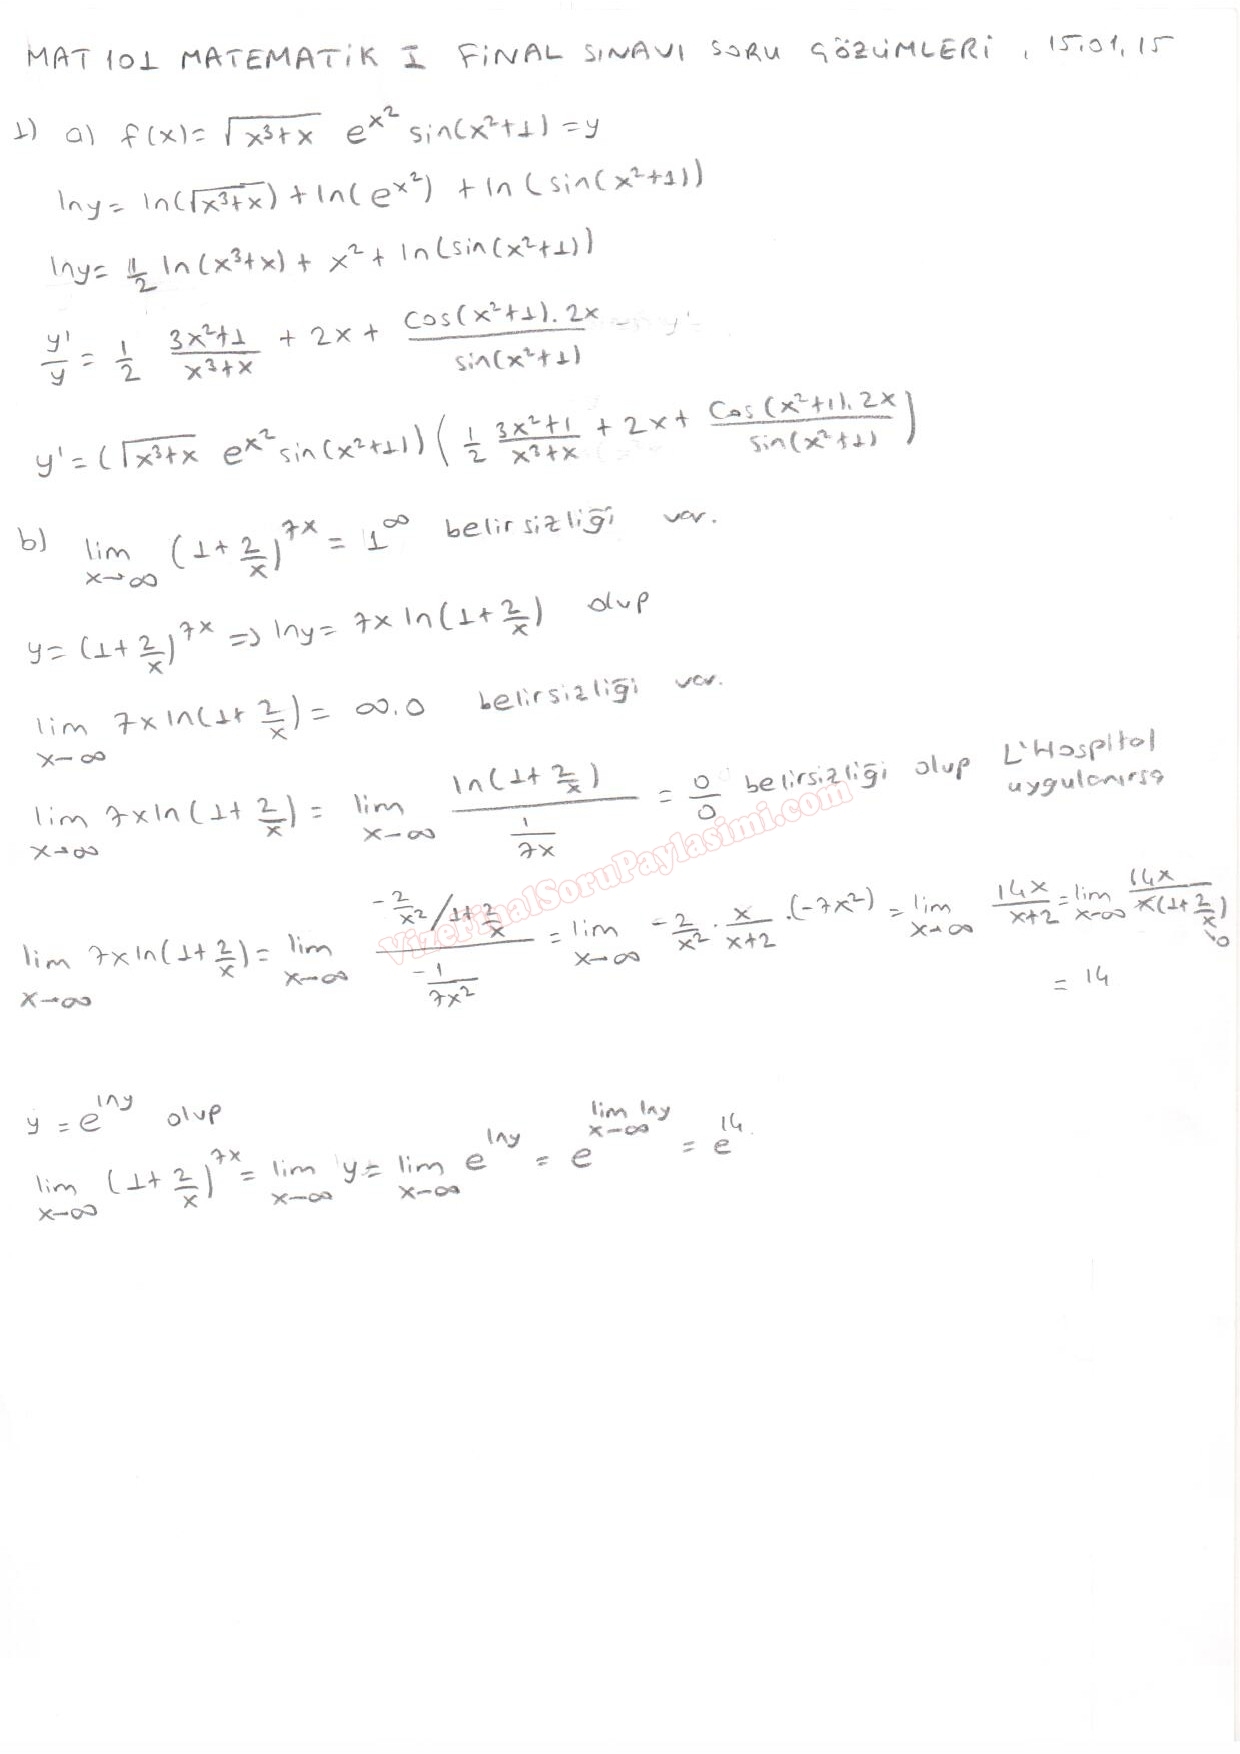 MAT 101 MATEMATİK I FİNAL SINAVI SORU ÇÖZÜMLERİ, 15.01.15
1) a) f(x)= √(x³+x) e^(x²) sin(x²+1) = y
lny= ln(√(x³+x)) + ln(e^(x²)) + ln(sin(x²+1))
lny= 1/2 ln(x³+x) + x² + ln(sin(x²+1))
y'/y = 1/2 (3x²+1)/(x³+x) + 2x + (cos(x²+1).2x)/(sin(x²+1))
y'= (√(x³+x) e^(x²) sin(x²+1)) (1/2 (3x²+1)/(x³+x) + 2x + (cos(x²+1).2x)/(sin(x²+1)))
b) lim x→∞ (1+2/x)^(7x) = 1^∞ belirsizliği var.
y= (1+2/x)^(7x) => lny= 7x ln(1+2/x) olup
lim x→∞ 7x ln(1+2/x) = ∞.0 belirsizliği var.
lim x→∞ 7x ln(1+2/x) = lim x→∞ (ln(1+2/x))/(1/7x) = 0/0 belirsizliği olup L'Hospital uygulanırsa
lim x→∞ 7x ln(1+2/x) = lim x→∞ (-2/x² / 1+2/x)/(-1/7x²) = lim x→∞ -2/x² . x/(x+2) .(-7x²) = lim x→∞ 14x/(x+2) = lim x→∞ 14x/(x(1+2/x)) →0
= 14
y = e^(lny) olup
lim x→∞ (1+2/x)^(7x) = lim x→∞ y = lim x→∞ e^(lny) = e^(lim x→∞ lny) = e^14.
VizeFinalSoruPaylasimi.com